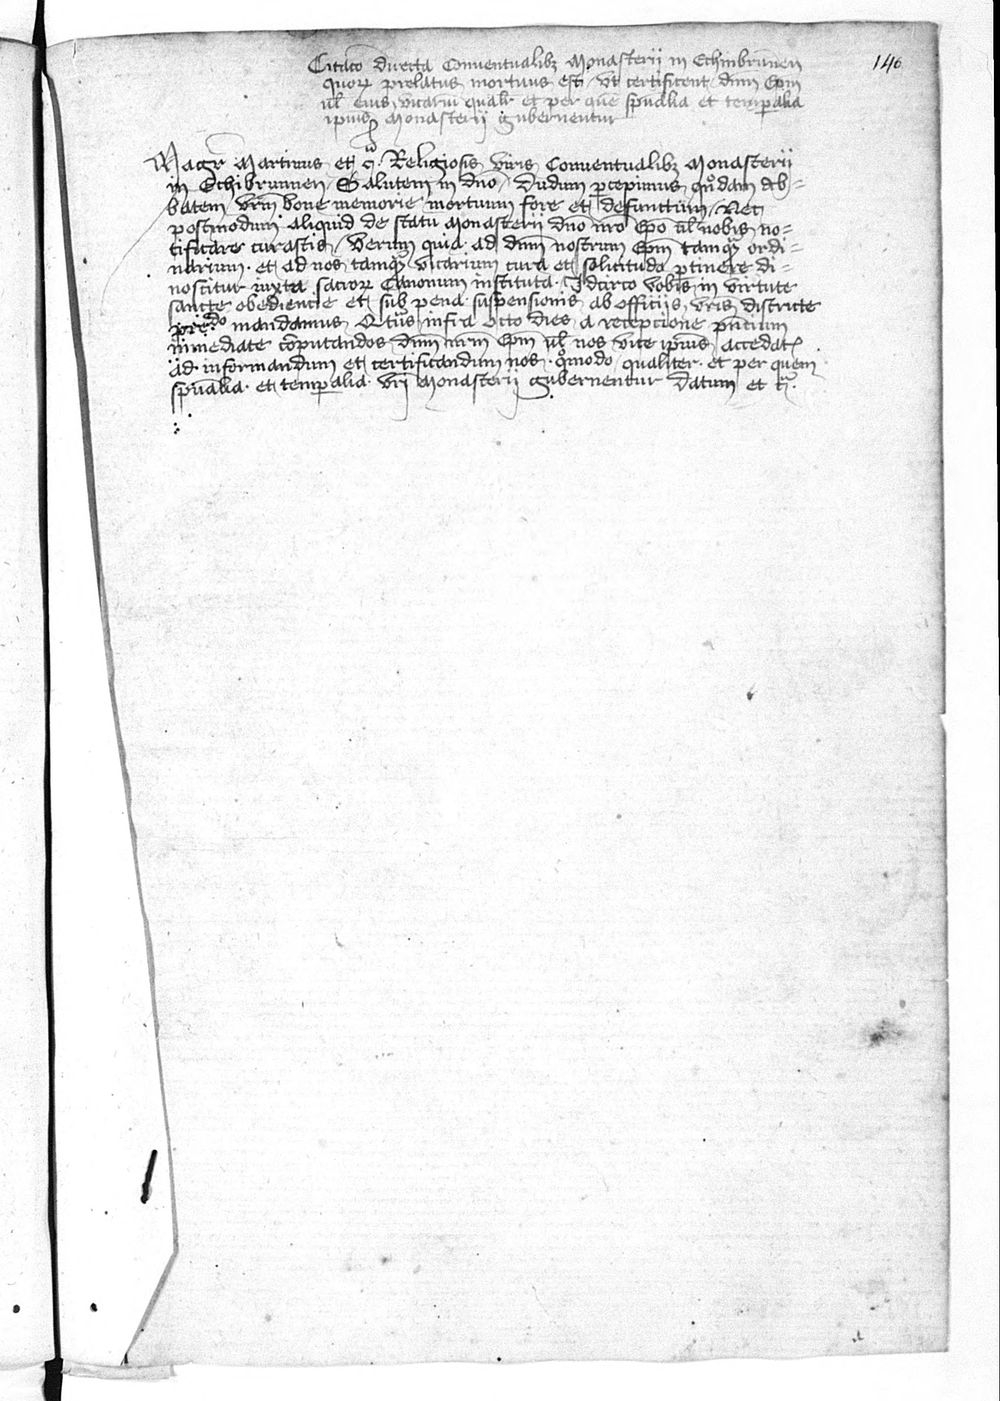 146
Citac̄o directa Conuentualibꝫ Monasterij in Echinbrunnen
quoꝝ prelatus mortuus est / vt certificent dnm̄ Ep̄m
ul̄ eius vicariū qualr̄ et per quē sp̄ualia et temꝑalia
ip̄ius Monasterij gubernentur
Magr̄ Martinus et c̄. Religiosis viris Conuentualibꝫ Monasterij
in Echibrunnen / Salutem in dn̄o / Dudum ꝑcepimus qn̄dam Ab=
batem vr̄m bone memorie mortuum fore et defunctum / Nec
postmodum aliquid de statu Monasterij dn̄o nr̄o Ep̄o ul̄ nobis no=
tificare curastis / Verum quia ad dnm̄ nostrum Ep̄m tamq̄ ordi=
narium et ad nos tamq̄ vicarium cura et solicitudo ꝑtinere di=
noscitur iuxta sacroꝝ Canonum instituta. Idcirco vobis in virtute
sancte obediencie et sub pena suspensionis ab officijs vr̄is districte
mandamus Qt̄us infra octo dies a recepcione pn̄cium
inmediate cōputandos dnm̄ nr̄m Ep̄m ul̄ nos vice ip̄ius accedat
ad informandum et certificandum nos quōmodo qualiter et per quem
sp̄ualia et temꝑalia vr̄i Monasterij gubernentur Datum et c̄.